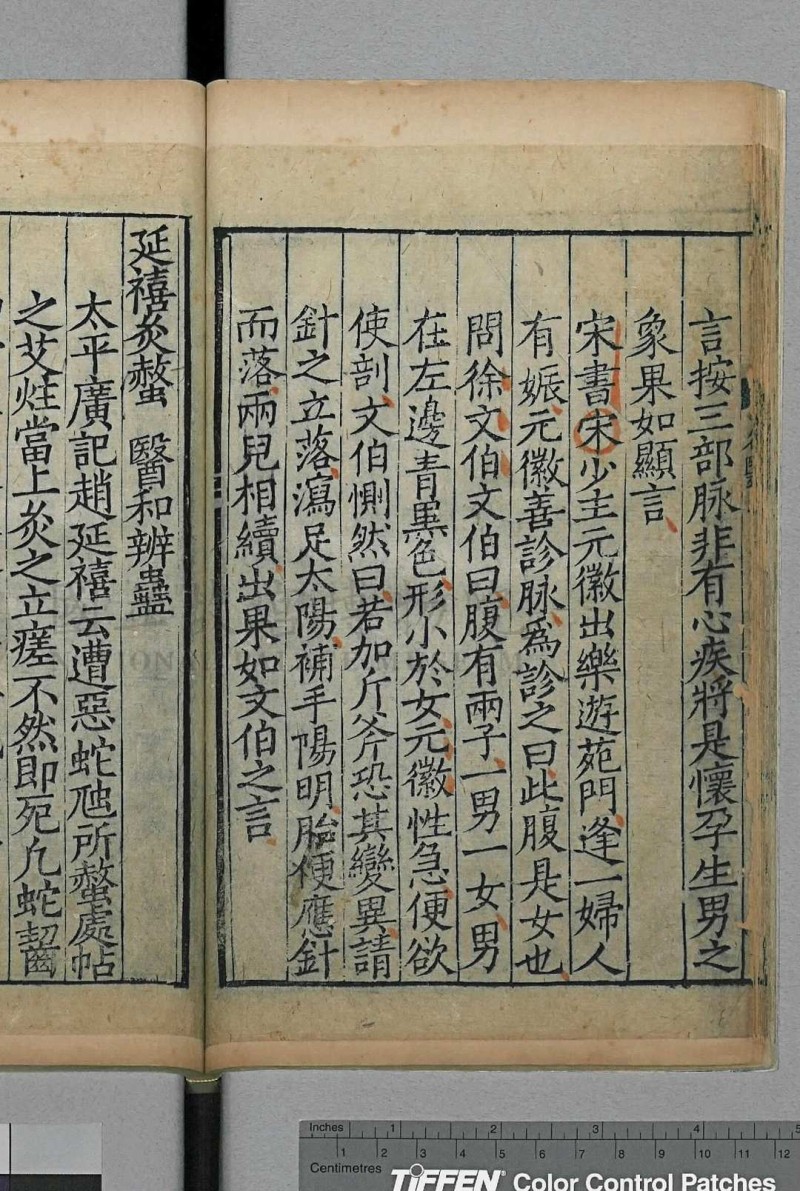 言按三部脉非有心疾將是懷孕生男之
象果如顯言
宋書宋少主元徽出樂遊苑門逢一婦人
有娠元徽善診脉爲診之曰此腹是女也
問徐文伯文伯曰腹有兩子一男一女男
在左邊青黑色形小於女元徽性急便欲
使剖文伯惻然曰若加斤斧恐其變異請
針之立落瀉足太陽補手陽明胎便應針
而落兩兒相續出果如文伯之言
延禧灸螫 醫和辨蠱
太平廣記趙延禧云遭惡蛇虺所螫處帖
之艾炷當上灸之立瘥不然即死凡蛇齧
Inches 1 2 3 4 5
Centimetres 1 2 3 4 5 6 7 8 9 10 11 12
TIFFEN Color Control Patches